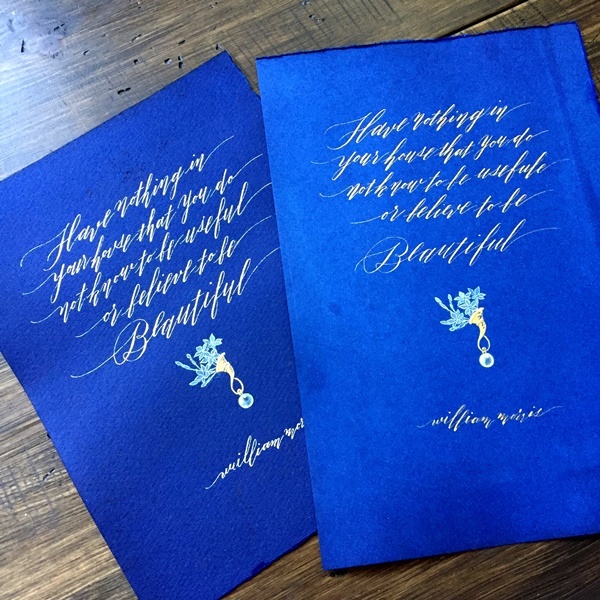 Have nothing in
your house that you do
not know to be useful
or believe to be
Beautiful
william mor
Have nothing in
your house that you do
not know to be useful
or believe to be
Beautiful
william morris